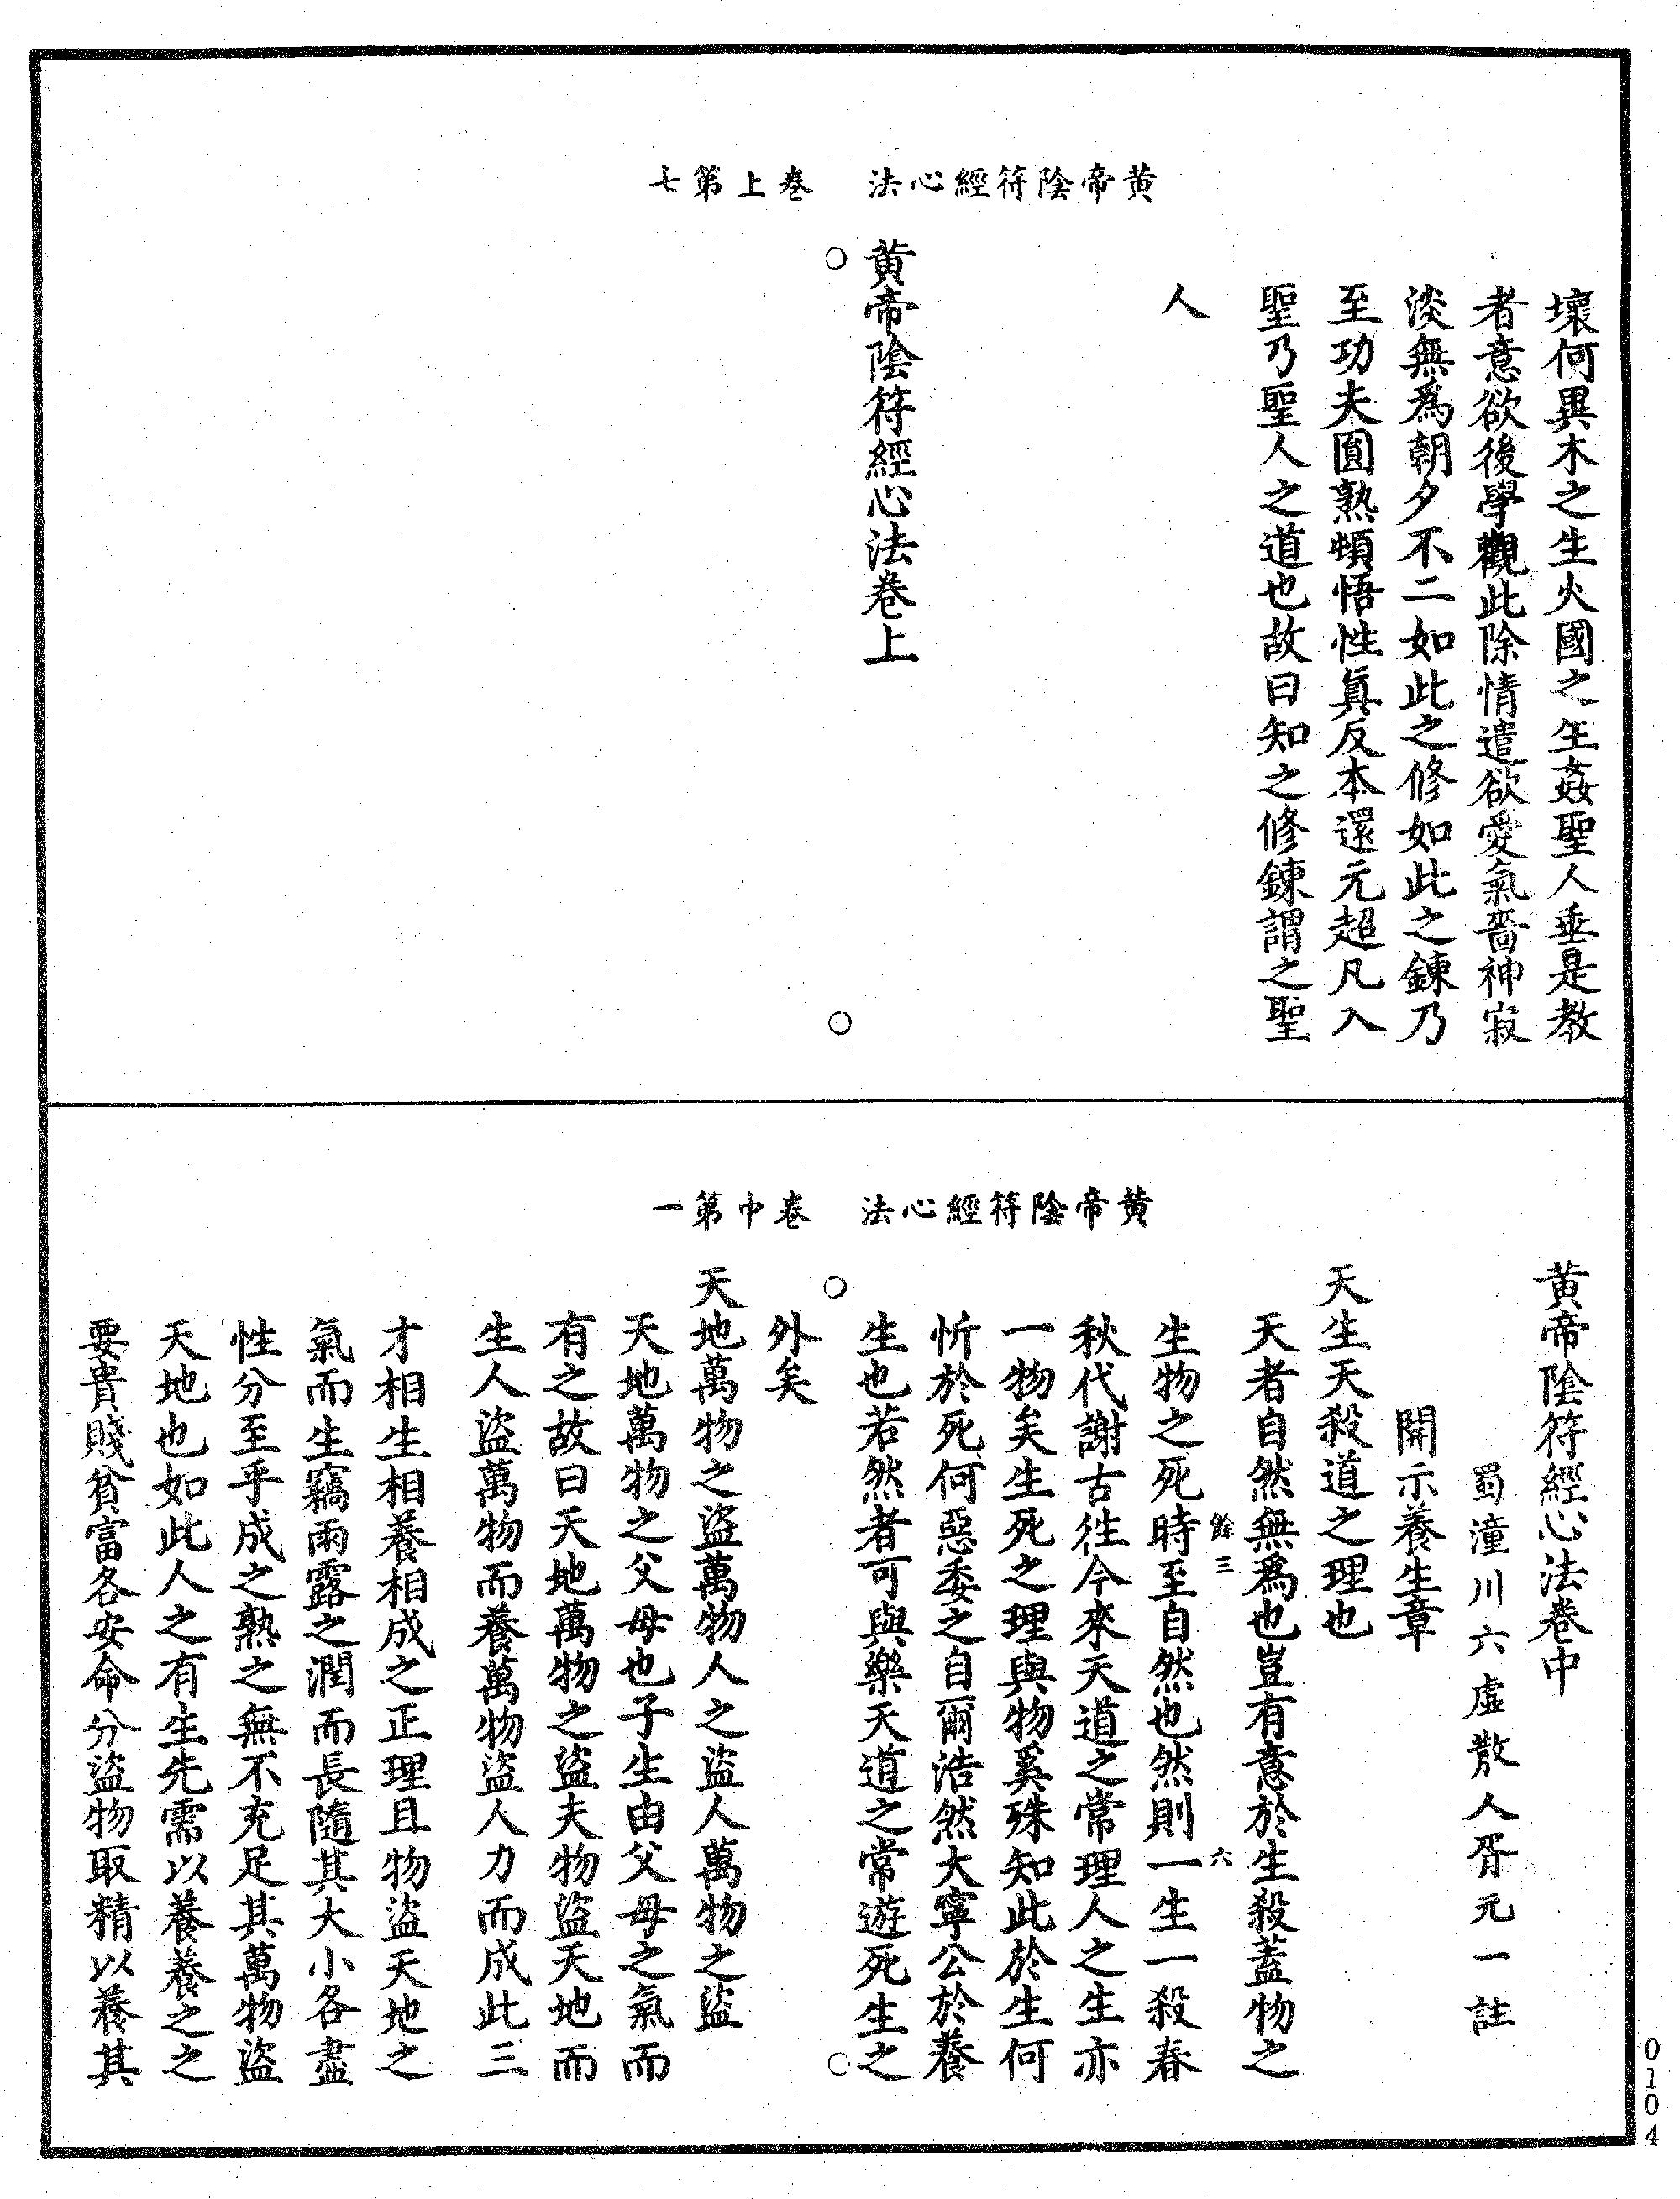 黄帝陰符經心法　卷上第七
壞何異木之生火國之生姦聖人垂是教
者意欲後學觀此除情遣欲愛氣嗇神寂
淡無爲朝夕不二如此之修如此之鍊乃
至功夫圓熟頓悟性真反本還元超凡入
聖乃聖人之道也故曰知之修鍊謂之聖
人
黄帝陰符經心法卷上
黄帝陰符經心法　卷中第一
黄帝陰符經心法卷中
蜀潼川六虛散人胥元一註
開示養生章
天生天殺道之理也
天者自然無爲也豈有意於生殺蓋物之
餘三　六
生物之死時至自然也然則一生一殺春
秋代謝古徃今來天道之常理人之生亦
一物矣生死之理與物奚殊知此於生何
忻於死何惡委之自爾浩然大寧公於養
生也若然者可與樂天道之常遊死生之
外矣
天地萬物之盜萬物人之盜人萬物之盜
天地萬物之父母也子生由父母之氣而
有之故曰天地萬物之盜夫物盜天地而
生人盜萬物而養萬物盜人力而成此三
才相生相養相成之正理且物盜天地之
氣而生竊雨露之潤而長隨其大小各盡
性分至乎成之熟之無不充足其萬物盜
天地也如此人之有生先需以養養之之
要貴賤貧富各安命分盜物取精以養其
0104